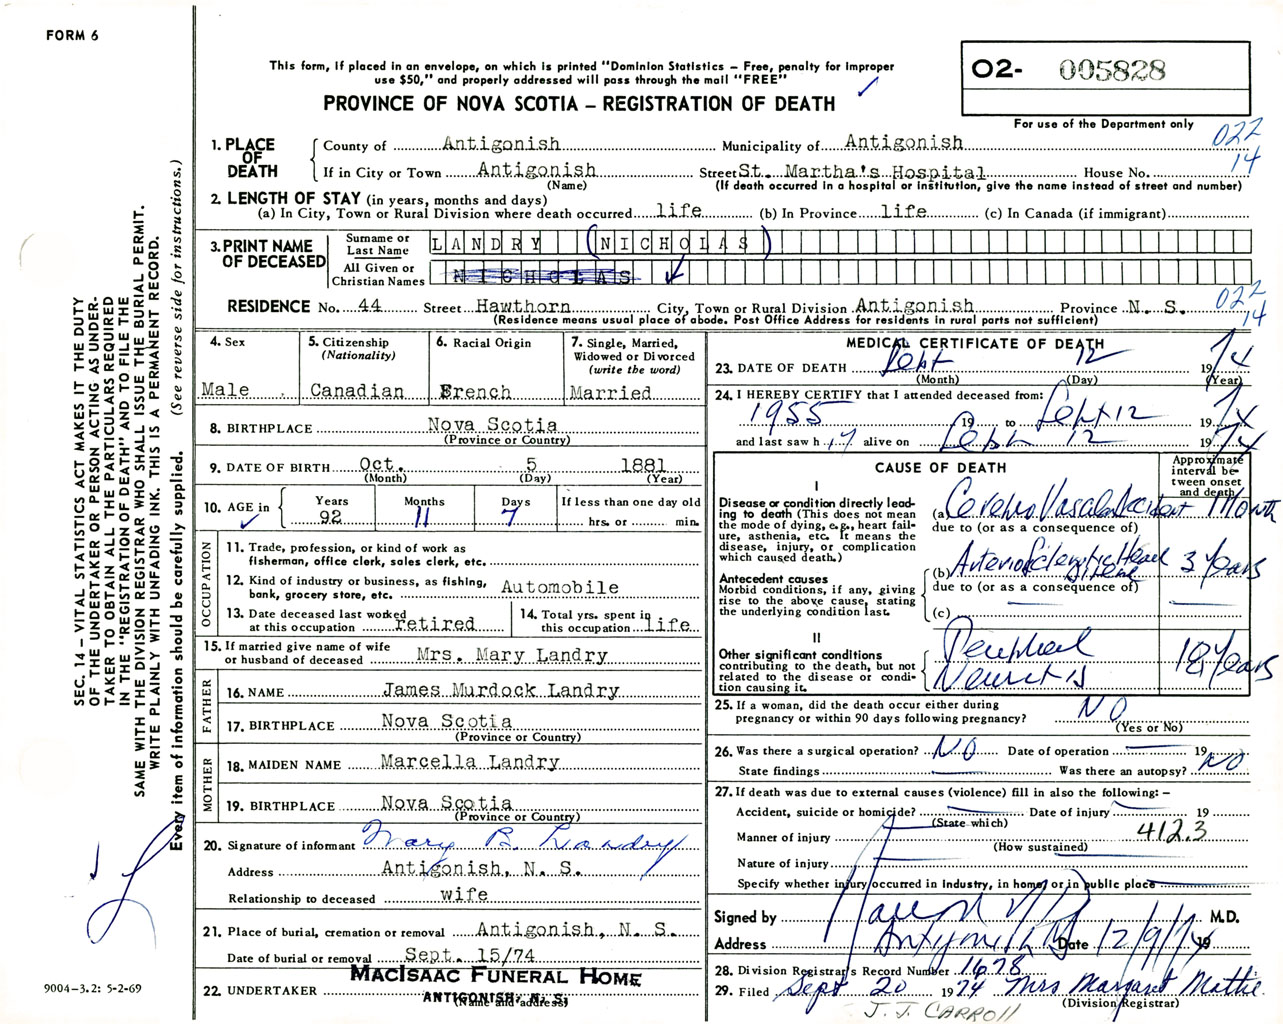 FORM 6
This form, if placed in an envelope, on which is printed "Dominion Statistics – Free, penalty for improper
use $50," and properly addressed will pass through the mail "FREE"
PROVINCE OF NOVA SCOTIA – REGISTRATION OF DEATH
O2- 005828
For use of the Department only
022
14
1. PLACE OF DEATH
County of Antigonish Municipality of Antigonish
If in City or Town Antigonish Street St. Martha's Hospital House No.
(Name) (If death occurred in a hospital or institution, give the name instead of street and number)
2. LENGTH OF STAY (in years, months and days)
(a) In City, Town or Rural Division where death occurred life (b) In Province life (c) In Canada (if immigrant)
3. PRINT NAME OF DECEASED
Surname or Last Name LANDRY (NICHOLAS)
All Given or Christian Names NICHOLAS
022
14
RESIDENCE No. 44 Street Hawthorn City, Town or Rural Division Antigonish Province N. S.
(Residence means usual place of abode. Post Office Address for residents in rural parts not sufficient)
4. Sex
Male
5. Citizenship
(Nationality)
Canadian
6. Racial Origin
French
7. Single, Married,
Widowed or Divorced
(write the word)
Married
8. BIRTHPLACE Nova Scotia
(Province or Country)
9. DATE OF BIRTH Oct. 5 1881
(Month) (Day) (Year)
10. AGE in
Years Months Days If less than one day old
92 11 7 hrs. or min.
OCCUPATION
11. Trade, profession, or kind of work as
fisherman, office clerk, sales clerk, etc.
12. Kind of industry or business, as fishing,
bank, grocery store, etc. Automobile
13. Date deceased last worked
at this occupation retired
14. Total yrs. spent in
this occupation life
15. If married give name of wife
or husband of deceased Mrs. Mary Landry
FATHER
16. NAME James Murdock Landry
17. BIRTHPLACE Nova Scotia
(Province or Country)
MOTHER
18. MAIDEN NAME Marcella Landry
19. BIRTHPLACE Nova Scotia
(Province or Country)
20. Signature of informant Mary B. Landry
Address Antigonish, N. S.
Relationship to deceased wife
21. Place of burial, cremation or removal Antigonish, N. S.
Date of burial or removal Sept. 15/74
MACISAAC FUNERAL HOME
22. UNDERTAKER ANTIGONISH, N. S.
(Name and address)
MEDICAL CERTIFICATE OF DEATH
23. DATE OF DEATH Sept 12 1974
(Month) (Day) (Year)
24. I HEREBY CERTIFY that I attended deceased from:
1955 19 to Sept 12 1974
and last saw h alive on Sept 12 1974
CAUSE OF DEATH
Approximate
interval be-
tween onset
and death
I
Disease or condition directly lead-
ing to death (This does not mean
the mode of dying, e.g., heart fail-
ure, asthenia, etc. It means the
disease, injury, or complication
which caused death.)
(a) Cerebro Vascular Accident 1 Month
due to (or as a consequence of)
Antecedent causes
Morbid conditions, if any, giving
rise to the above cause, stating
the underlying condition last.
(b) Arteriosclerotic Heart Disease 3 Years
due to (or as a consequence of)
(c)
II
Other significant conditions
contributing to the death, but not
related to the disease or condi-
tion causing it.
Peripheral
Neuritis
18 Years
25. If a woman, did the death occur either during
pregnancy or within 90 days following pregnancy? NO
(Yes or No)
26. Was there a surgical operation? NO Date of operation 19
State findings Was there an autopsy? NO
27. If death was due to external causes (violence) fill in also the following: –
Accident, suicide or homicide? Date of injury 19
(State which)
Manner of injury 412.3
(How sustained)
Nature of injury
Specify whether injury occurred in industry, in home, or in public place
Signed by M.D.
Address Antigonish Date 12/9/74 19
28. Division Registrar's Record Number 1678
29. Filed Sept 20 1974 Mrs Margaret Mattie
(Division Registrar)
J. J. CARROLL
SEC. 14 – VITAL STATISTICS ACT MAKES IT THE DUTY
OF THE UNDERTAKER OR PERSON ACTING AS UNDER-
TAKER TO OBTAIN ALL THE PARTICULARS REQUIRED
IN THE "REGISTRATION OF DEATH" AND TO FILE THE
SAME WITH THE DIVISION REGISTRAR WHO SHALL ISSUE THE BURIAL PERMIT.
WRITE PLAINLY WITH UNFADING INK. THIS IS A PERMANENT RECORD.
Every item of information should be carefully supplied. (See reverse side for instructions.)
9004-3.2: 5-2-69